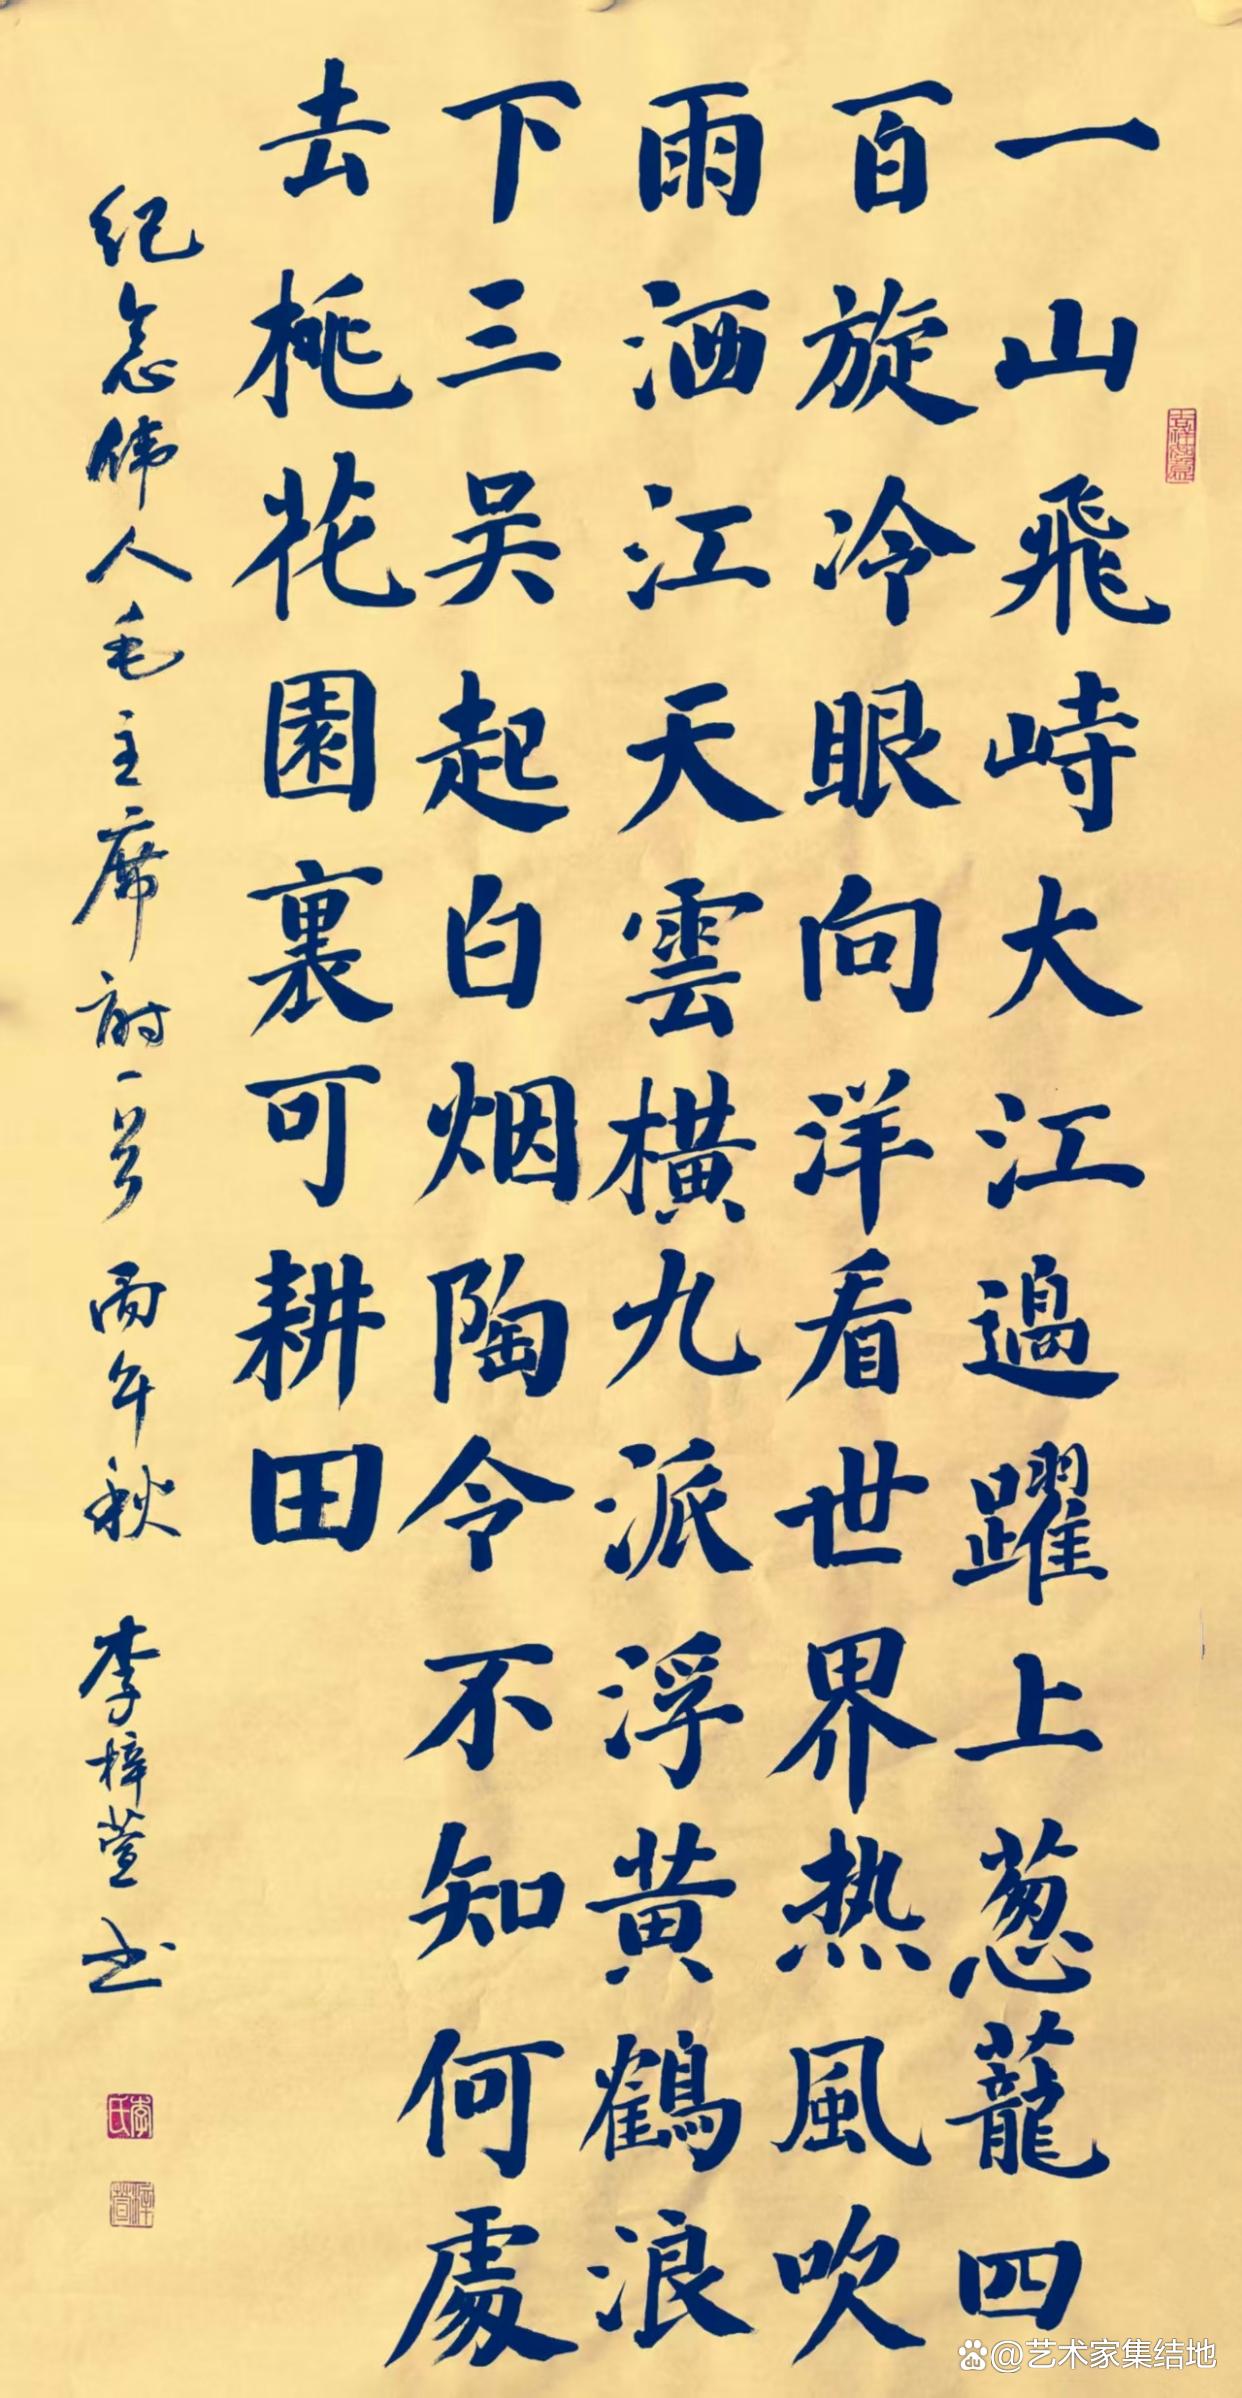 一山飛峙大江邊躍上葱蘢四
百旋冷眼向洋看世界热風吹
雨洒江天雲横九派浮黄鶴浪
下三吴起白烟陶令不知何處
去桃花園裏可耕田
纪念伟人毛主席诗一首 丙午秋 李梓萱书
李氏
梓萱
@艺术家集结地